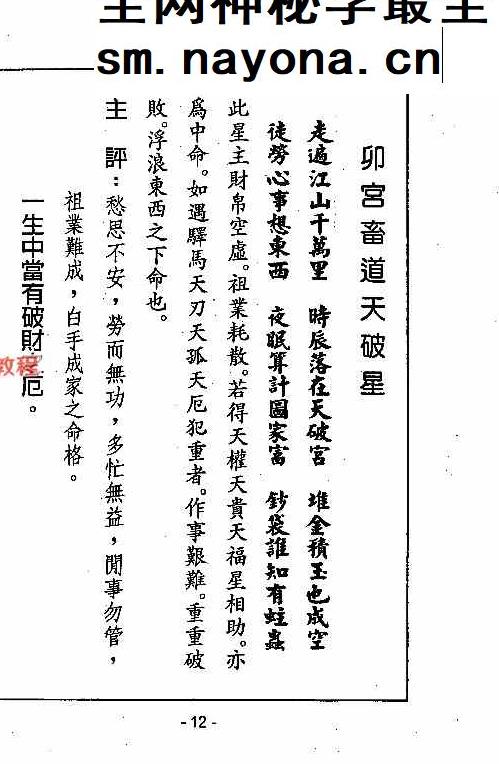 全网神秘学最全
sm.nayona.cn
卯宮畜道天破星
走遍江山千萬里 時辰落在天破宮 堆金積玉也成空
徒勞心事想東西 夜眠算計圖家富 鈔袋誰知有蛀蟲
此星主財帛空虛。祖業耗散。若得天權天貴天福星相助。亦
爲中命。如遇驛馬天刃天孤天厄犯重者。作事艱難。重重破
敗。浮浪東西之下命也。
主 評：愁思不安，勞而無功，多忙無益，閒事勿管，
祖業難成，白手成家之命格。
一生中當有破財 厄。
教程
- 12 -